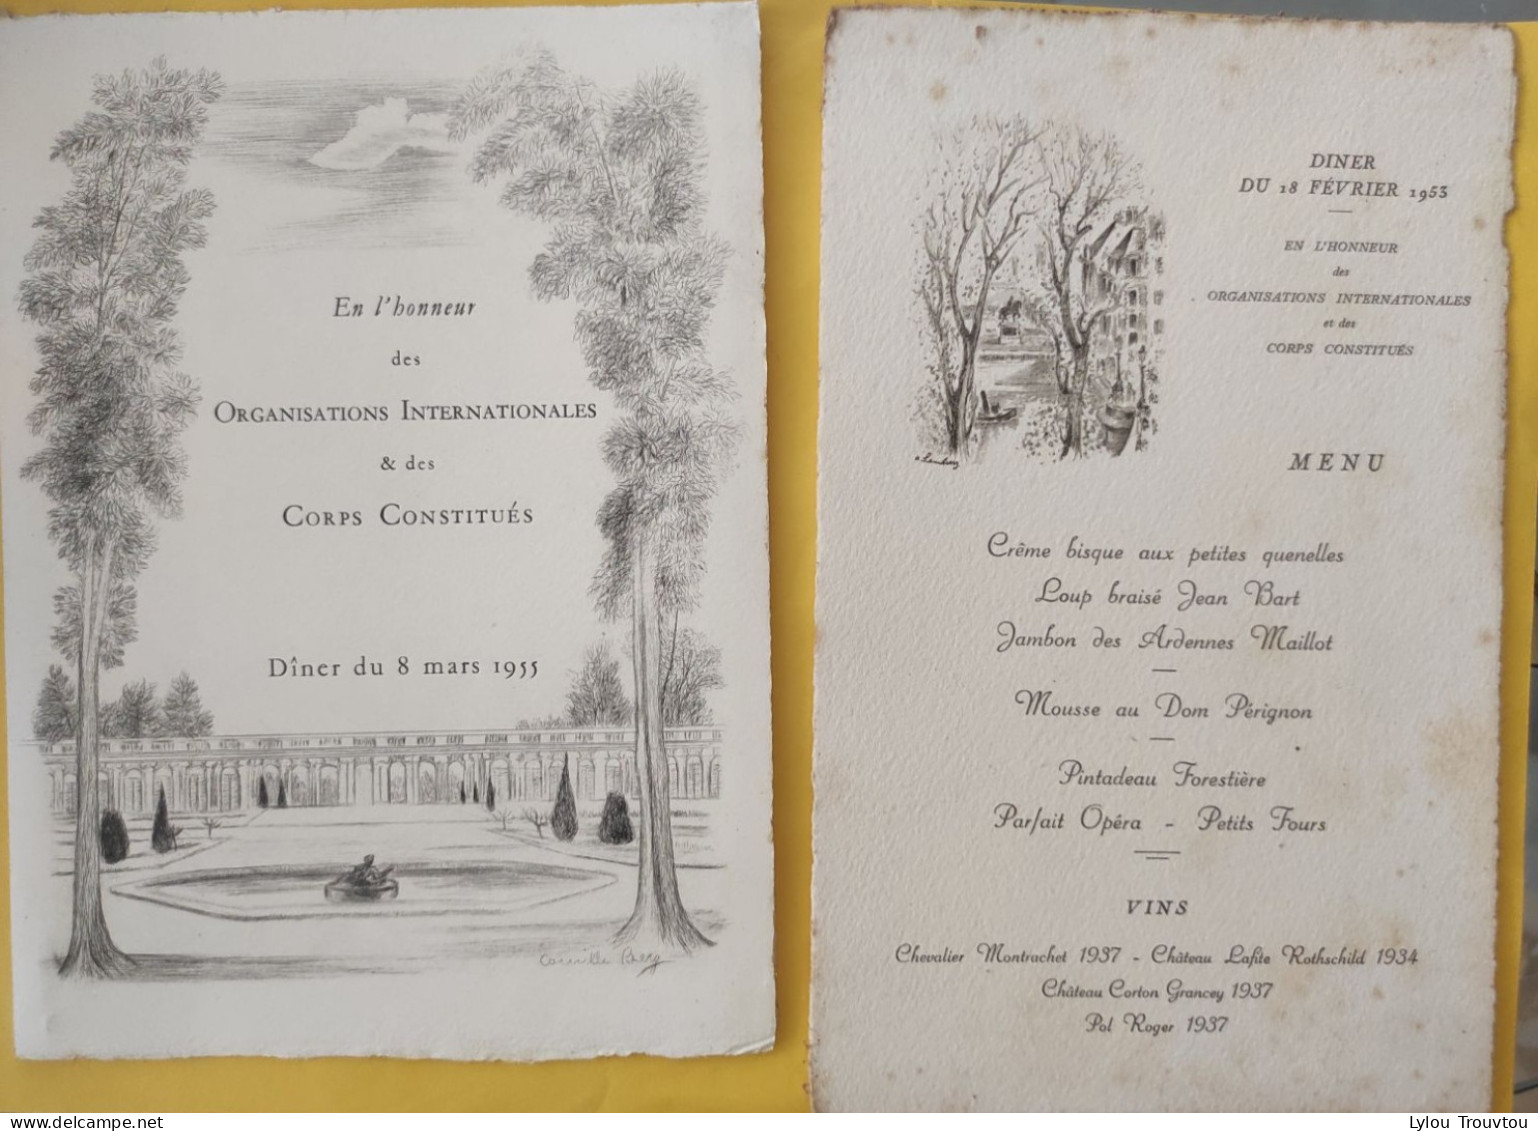 En l'honneur
des
ORGANISATIONS INTERNATIONALES
& des
CORPS CONSTITUÉS
Dîner du 8 mars 1955
DINER
DU 18 FÉVRIER 1953
EN L'HONNEUR
des
ORGANISATIONS INTERNATIONALES
et des
CORPS CONSTITUÉS
MENU
Crême bisque aux petites quenelles
Loup braisé Jean Bart
Jambon des Ardennes Maillot
Mousse au Dom Pérignon
Pintadeau Forestière
Parfait Opéra - Petits Fours
VINS
Chevalier Montrachet 1937 - Château Lafite Rothschild 1934
Château Corton Grancey 1937
Pol Roger 1937
Lylou Trouvtou